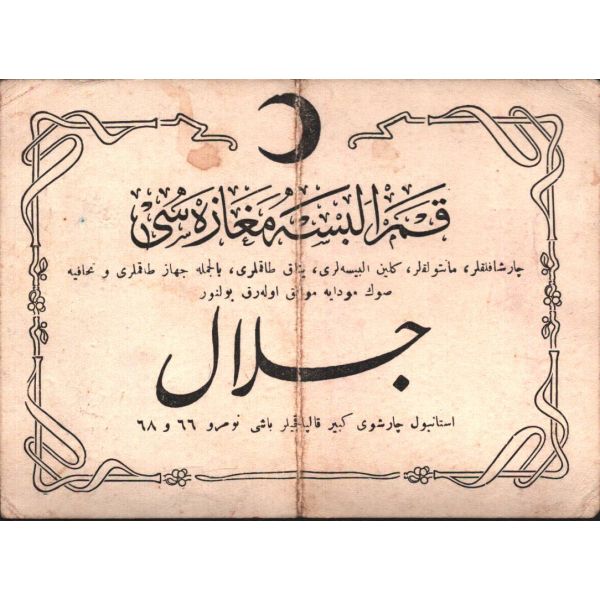 قمر البسه مغازه سی
چارشافلقلر، مانتولقلر، كلین البیسه‌لری، یتاق طاقملری، بالجمله جهاز طاقملری و تحافیه
صوك مودایه موافق اوله‌رق بولنور
جلال
استانبول چارشوی كبیر قالپاقجیلر باشی نومرو ٦٦ و ٦٨